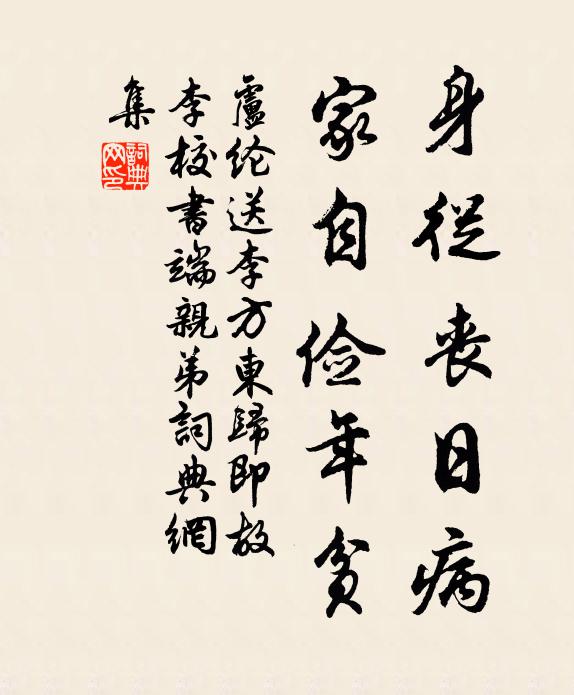 身從喪日病
家自儉年貧
盧綸送李方東歸即故
李校書端親弟詞典網
集
詞典網印